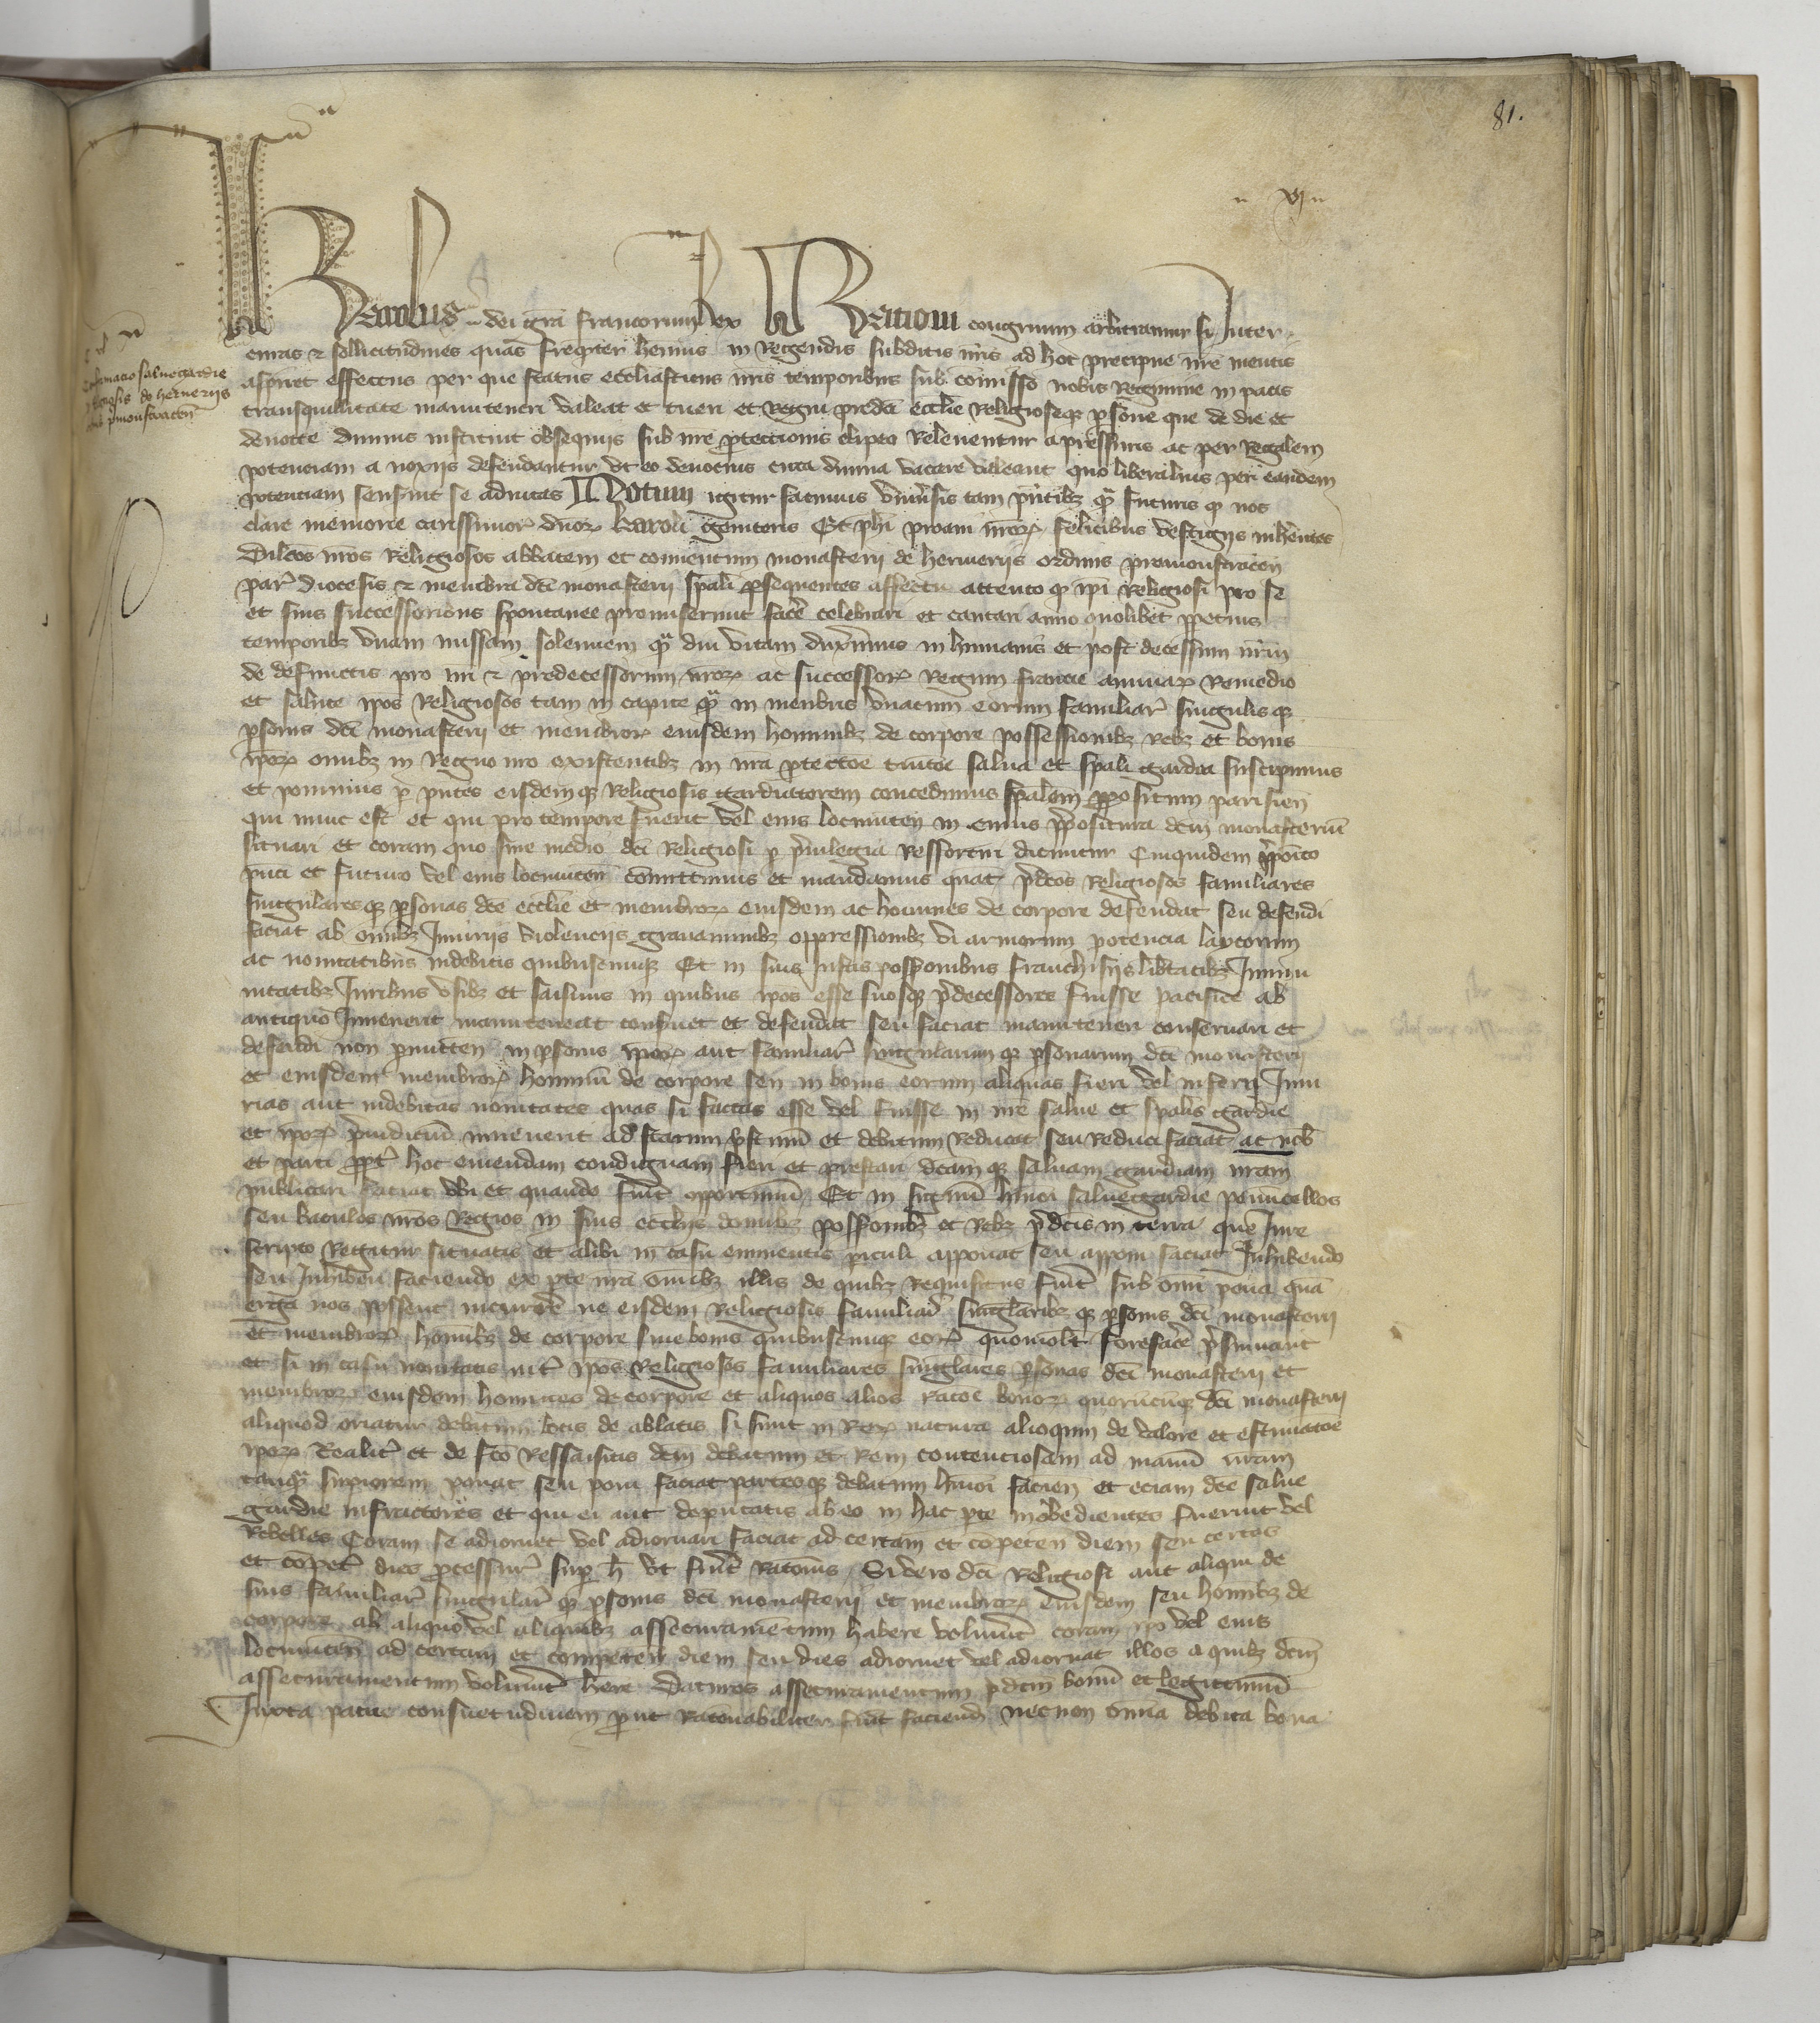 81.
VI
Karolus dei gra francorum Rex Rationi congruum arbitramur si Inter
curas & sollicitudines quas freqnter herimus in Regendis subditis nris ad hoc precipue nre mentis
aspiret effectus per que status eccliasticus nris temporibus sub comisso nobis Regimine in pacis
confirmacio salvegardie
religiosis de hermeriis
ord premonstracen
transquillitate manuteneri valeat et tueri et Regni predci ecclie Religioseq psone que de die et
de nocte divinis insistunt obsequiis sub nre ptectionis clipeo Releventur a pressuris ac per Regalem
potenciam a noxiis defendantur ut eo devocius circa divina vacare valeant quo liberalius per eandem
potenciam senserint se adiutas Notum igitur facimus univsis tam pntibz q futuris q nos
clare memorie carissimor dnor karoli genitoris Et phi proavi nror felicibus vestigiis inherentes
Dilcos nros Religiosos abbatem et conventum monasterii de hermeriis ordinis premonstracen
par diocesis & membri dci monasterii spali psequentes affectu attento q ipi Religiosi pro se
et suis successoribus spontanee promiserunt face celebrari et cantari anno quolibet ppetuis
temporibz unam missam solennem q diu vitam duxerimus in humanis et post decessum nrm
de defunctis pro nri & predecessorum nror ac successor Regum francie animar Remedio
et salute ipos Religiosos tam in capite q in membris unacum eorum familiar singulisq
psonis dci monasterii et membror eiusdem hominibz de corpore possessionibz rebz et bonis
ipor omibz in Regno nro existentibz in nra ptectoe tuitoe salva et spali gardia suscipimus
et ponimus p pntes eisdemq Religiosis gardiatorem concedimus spalem ppositum parisien
qui nunc est et qui pro tempore fuerit vel eius locumten in cuius ppositura dcm monasterium
situari et coram quo sine medio dci Religiosi p privilegia Ressortiri dicuntur Cuiquidem pposito
pnti et futuro vel eius locumten comittimus et mandamus quat pdcos Religiosos familiares
singularesq psonas dce ecclie et membror eiusdem ac homines de corpore defendat seu defendi
faciat ab omibz Iniuriis violenciis gravaminibz oppressionibz vi armorum potencia laycorum
ac novitatibus indebitis quibuscumq Et in suis iustis possionibus franchisiis libtatibz Immu
nitatibz Iuribus usibz et saisinis in quibus ipos esse suosq pdecessores fuisse pacifice ab
antiquo Invenerit manuteneat conservet et defendat seu faciat manuteneri conservari et
defendi non pmitten in psonis ipor aut familiar singulariumq psonarum dci monasterii
et eiusdem membror hominu de corpore seu in bonis eorum aliquas fieri vel inferri Iniu
rias aut indebitas novitates quas si factas esse vel fuisse in nre salve et spalis gardie
et ipor piudicium invenerit ad statum pstinu et debitum Reducat seu Reduci faciat ac nob
et parti ppt hoc emendam condignam fieri et prestari dcamq salvam gardiam nram
publicari faciat ubi et quando fuit opportunu Et in signu huioi salvegardie penuncellos
seu baculos nros Regios in suis eccliis domibz possionibz et Rebz pdcis in terra que Iure
scripto Regitur situatis et alibi in casu eminentis piculi apponat seu apponi faciat Inhibendo
seu Inhiberi faciendo ex pte nra omibz illis de quibz Requisitus fuit sub omi pena qua
erga nos possent incurrere ne eisdem Religiosis familiar singlaribzq psonis dci monasterii
et membror hominibz de corpore sive bonis quibuscumq eor quomolt foreface psumant
et si in casu novitatis int ipos Religiosos familiares singlares psonas dci monasterii et
membror eiusdem homines de corpore et aliquos alios racoe bonor quorucuq dci monasterii
aliquod oriatur debatum locis de ablatis si sint in Rer natura alioquin de valore et estimatoe
ipor Realit et de fco Ressaisitis dcm debatum et Rem contenciosam ad manu nram
tanq supiorem ponat seu poni faciat partesq debatum huioi facien et eciam dce salve
gardie infractores et qui ei aut deputatis ab eo in hac pte inobedientes fuerint vel
Rebelles Coram se adiornet vel adiornari faciat ad certam et copeten diem seu certos
et copet dies pcessur sup h ut fuit Rationis Si vero dci Religiosi aut aliqui de
suis familiar singularq psonis dci monasterii et membror eiusdem seu homibz de
corpore ab aliquo vel aliquibz assecuramentum habere voluint coram ipo vel eius
locumten ad certam et competen diem seu dies adiornet vel adiornat illos a quibz dcm
assecuramentum voluint here daturos assecuramentum pdcm bonu et legittimu
Iuxta patrie consuetudinem put Rationabiliter fuit faciend necnon omia debita bona